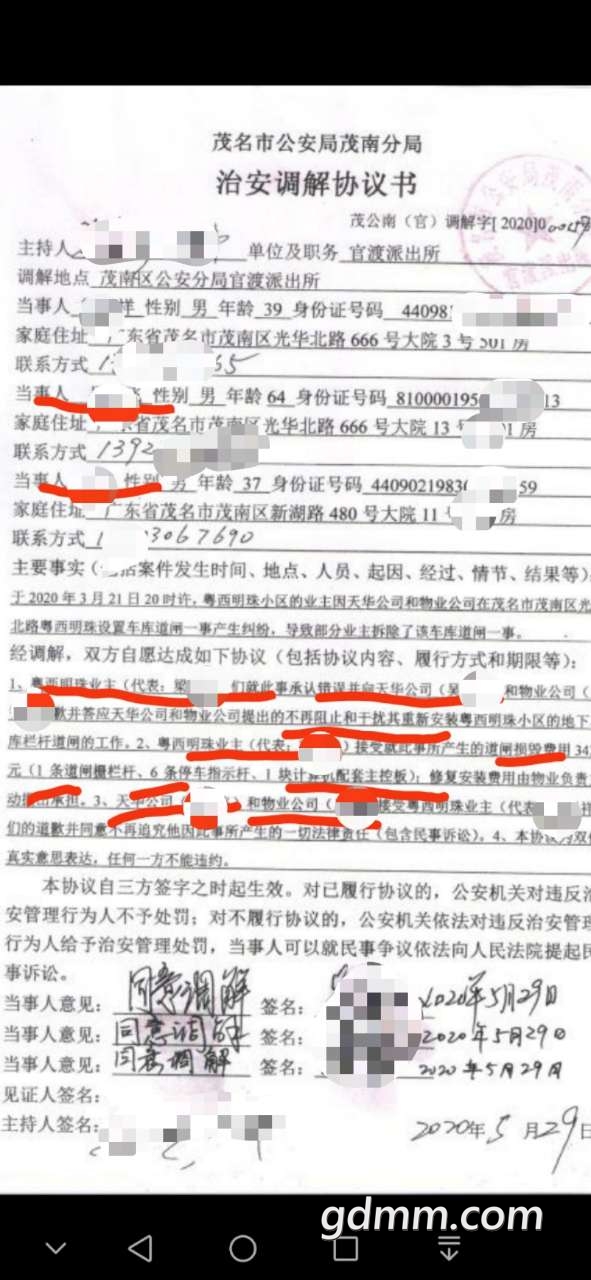 茂名市公安局茂南分局
治安调解协议书
茂公南（官）调解字[2020]00049
主持人 单位及职务 官渡派出所
调解地点 茂南区公安分局官渡派出所
当事人 祥 性别 男 年龄 39 身份证号码 44098
家庭住址 广东省茂名市茂南区光华北路 666 号大院 3 号 501 房
联系方式 1 65
当事人 性别 男 年龄 64 身份证号码 8100001950 13
家庭住址 广东省茂名市茂南区光华北路 666 号大院 13 号 01 房
联系方式 1392
当事人 性别 男 年龄 37 身份证号码 4409021983 59
家庭住址 广东省茂名市茂南区新湖路 480 号大院 11 房
联系方式 1 3067690
主要事实（包括案件发生时间、地点、人员、起因、经过、情节、结果等）：
于 2020 年 3 月 21 日 20 时许，粤西明珠小区的业主因天华公司和物业公司在茂名市茂南区光
北路粤西明珠设置车库道闸一事产生纠纷，导致部分业主拆除了该车库道闸一事。
经调解，双方自愿达成如下协议（包括协议内容、履行方式和期限等）：
1、粤西明珠业主（代表：梁 们就此事承认错误并向天华公司（吴 和物业公司（
歉并答应天华公司和物业公司提出的不再阻止和干扰其重新安装粤西明珠小区的地下
库栏杆道闸的工作。2、粤西明珠业主（代表： ）接受就此事所产生的道闸损毁费用 34
元（1 条道闸栅栏杆、6 条停车指示杆、1 块计算机配套主控板）；修复安装费用由物业负责
动 承担。3、天华公司（ ）和物业公司（ 接受粤西明珠业主（代表 祥
们的道歉并同意不再追究他因此事所产生的一切法律责任（包含民事诉讼）。4、本协议为双
真实意思表达，任何一方不能违约。
本协议自三方签字之时起生效。对已履行协议的，公安机关对违反治
安管理行为人不予处罚；对不履行协议的，公安机关依法对违反治安管理
行为人给予治安管理处罚，当事人可以就民事争议依法向人民法院提起民
事诉讼。
当事人意见：同意调解 签名： 2020年5月29日
当事人意见：同意调解 签名： 2020年5月29日
当事人意见：同意调解 签名： 2020年5月29日
见证人签名：
主持人签名： 2020年5月29日
gdmm.com